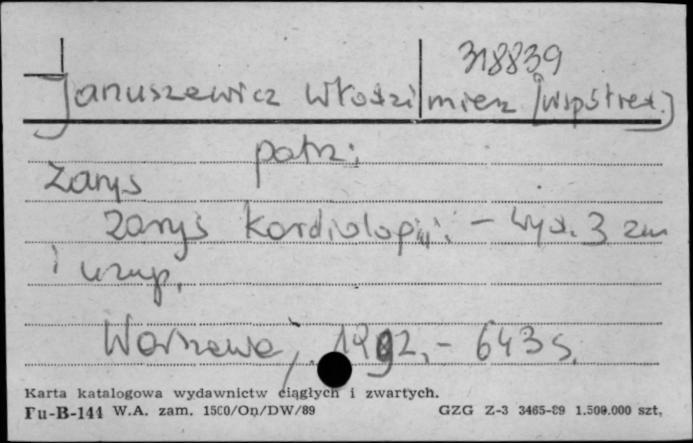 318839
Januszewicz Włodzimierz [współred.]
patrz:
Zarys
Zarys kardiologii. - Wyd. 3 zm
i uzup.
Warszawa, 1992. - 643 s.
Karta katalogowa wydawnictw ciągłych i zwartych.
Pu-B-144 W.A. zam. 1500/On/DW/89 GZG Z-3 3465-89 1.500.000 szt,